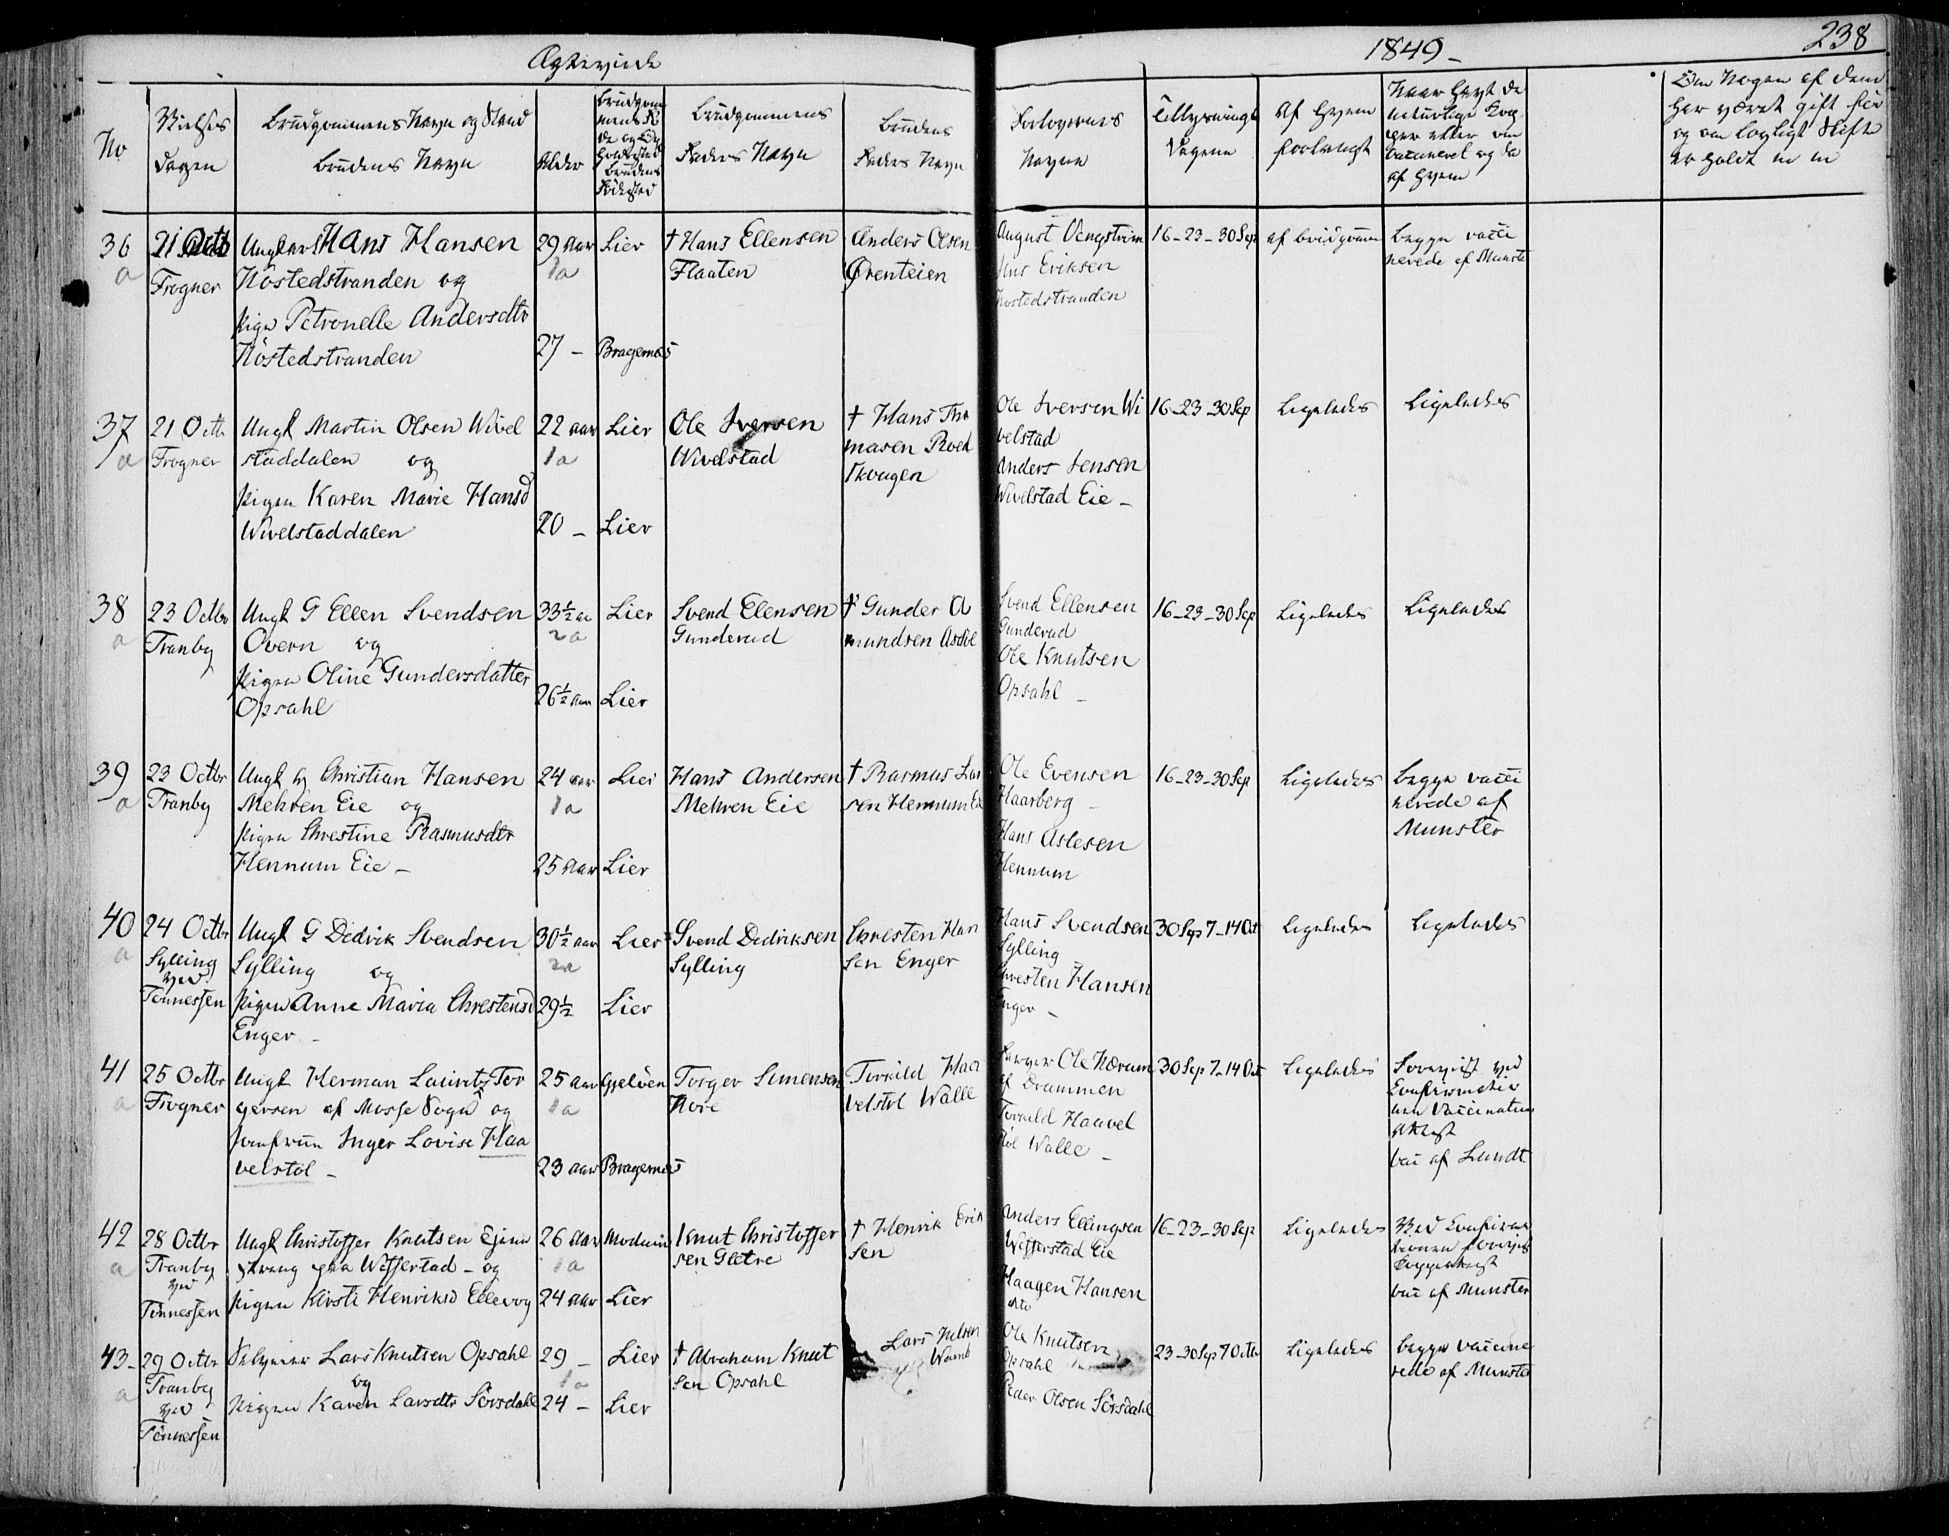 Ægteviede
1849 -
238
No
Vielses Dagen
Brudgommens Navn og Stand
Brudens Navn
Alder
Brudgommens Fø
de og
Brudens
Fødested
Brudgommens
Faders Navn
Brudens
Faders Navn
Forlovernes
Navne
Tillysnings
Dagene
Af Hvem
forlangt
Hvor Havt de
naturlige Kop
per eller om
vaccineret og da
af Hvem
Om Nogen af dem
har været gift før
og om lovligt Skifte
er holdt m m
36
a
21 Octb
Frogner
Ungkarl Hans Hansen
Nöstedstranden og
Pige Petronelle Andersdtr
Nöstedstranden
29 Aar
1a
27 -
Lier
Bragernes
† Hans Ellensen
Flaaten
Anders Olsen
Örenteien
August Vengström
Jens Eriksen
Nostedstranden
16-23-30 Sep
af brudgommen
begge vacci
nerede af Munste
37
a
21 Octb
Frogner
Ungk Martin Olsen Wivel
staddalen og
Pigen Karen Marie Hansd
Wivelstaddalen
22 aar
1a
20 -
Lier
Lier
Ole Iversen
Wivelstad
† Hans Tho
masen Roed
skougen
Ole Iversen Wi
velstad
Anders Jensen
Wivelstad Eie -
16-23-30 Sep
Ligeledes
Ligeledes
38
a
23 Octbr
Tranby
Ungk G Ellen Svendsen
Overn og
Pigen Oline Gundersdatter
Opsahl
33½ aa
2a
26½ Aar
Lier
Lier
Svend Elensen
Gunderud
† Gunder A
mundsen Asdöl
Svend Ellensen
Gunderud
Ole Knutsen
Opsahl -
16-23-30 Sep
Ligeledes
Ligeledes
39
a
23 Octbr
Tranby
Ungk G Christian Hansen
Mehren Eie og
Pigen Chrestine Rasmusdtr
Hennum Eie -
24 aar
1a
25 Aar
Lier
Lier
Hans Andersen
Mehren Eie
† Rasmus Lar
sen Hennum Eie
Ole Evensen
Haarberg -
Hans Aslesen
Hennum
16-23-30 Sep
Ligeledes
begge vacci
nerede af
Munster
40
a
24 Octbr
Sylling
ved
Tönnessen
Ungk G Dedrik Svendsen
Sylling og
Pigen Anne Maria Chrestensd
Enger -
30½ aar
2a
29½
Lier
Lier
Svend Dedriksen
Sylling
Chresten Han
sen Enger
Hans Svendsen
Sylling
Chresten Hansen
Enger -
30 Sep 7-14 Oct
Ligeledes
Ligeledes
41
a
25 Octbr
Frogner
Ungk Herman Lauritz Tor
gersen af Mosse Sogn og
Jomfruen Inger Lovise Haa
velstol -
25 Aar
1a
23 aar
Gjelöen
Bragernes
Torger Simensen
Nore
Torkild Haa
velstol Walle
Ole Nærum
af Drammen
Torkild Haavel
stöl Walle -
30 Sep 7-14 Oct
Ligeledes
Foreviist ved
Confirmatio
nen Vaccinations
Attest
vac af Lundt
42
a
28 Octbr
Tranby
ved
Tönnessen
Ungk Christoffer Knutsen Tjene
streng paa Wefferstad - og
Pigen Kirsti Henriksd Ellevog
26 Aar
1a
24 Aar
Modum
Lier
Knut Christoffer
sen Glætre
† Henrik Erik
sen
Anders Ellingsen
Wefferstad Eie
Haagen Hansen
dito
16-23-30 Sep
Ligeledes
Ved Confirma
tionen foreviist
Koppeattest
vac af Munster
43 -
a
29 Octbr
Tranby
ved
Tönnessen
Selveier Lars Knutsen Opsahl
og
Pigen Karen Larsdtr Sörsdahl
29 -
1a
24 -
Lier
Lier
† Abraham Knut
sen Opsahl
Lars
Ole Knutsen
Opsahl
Peder Olsen Sörsdahl
23-30 Sep 7 Octbr
Ligeledes
begge vaccine
rede af Munster